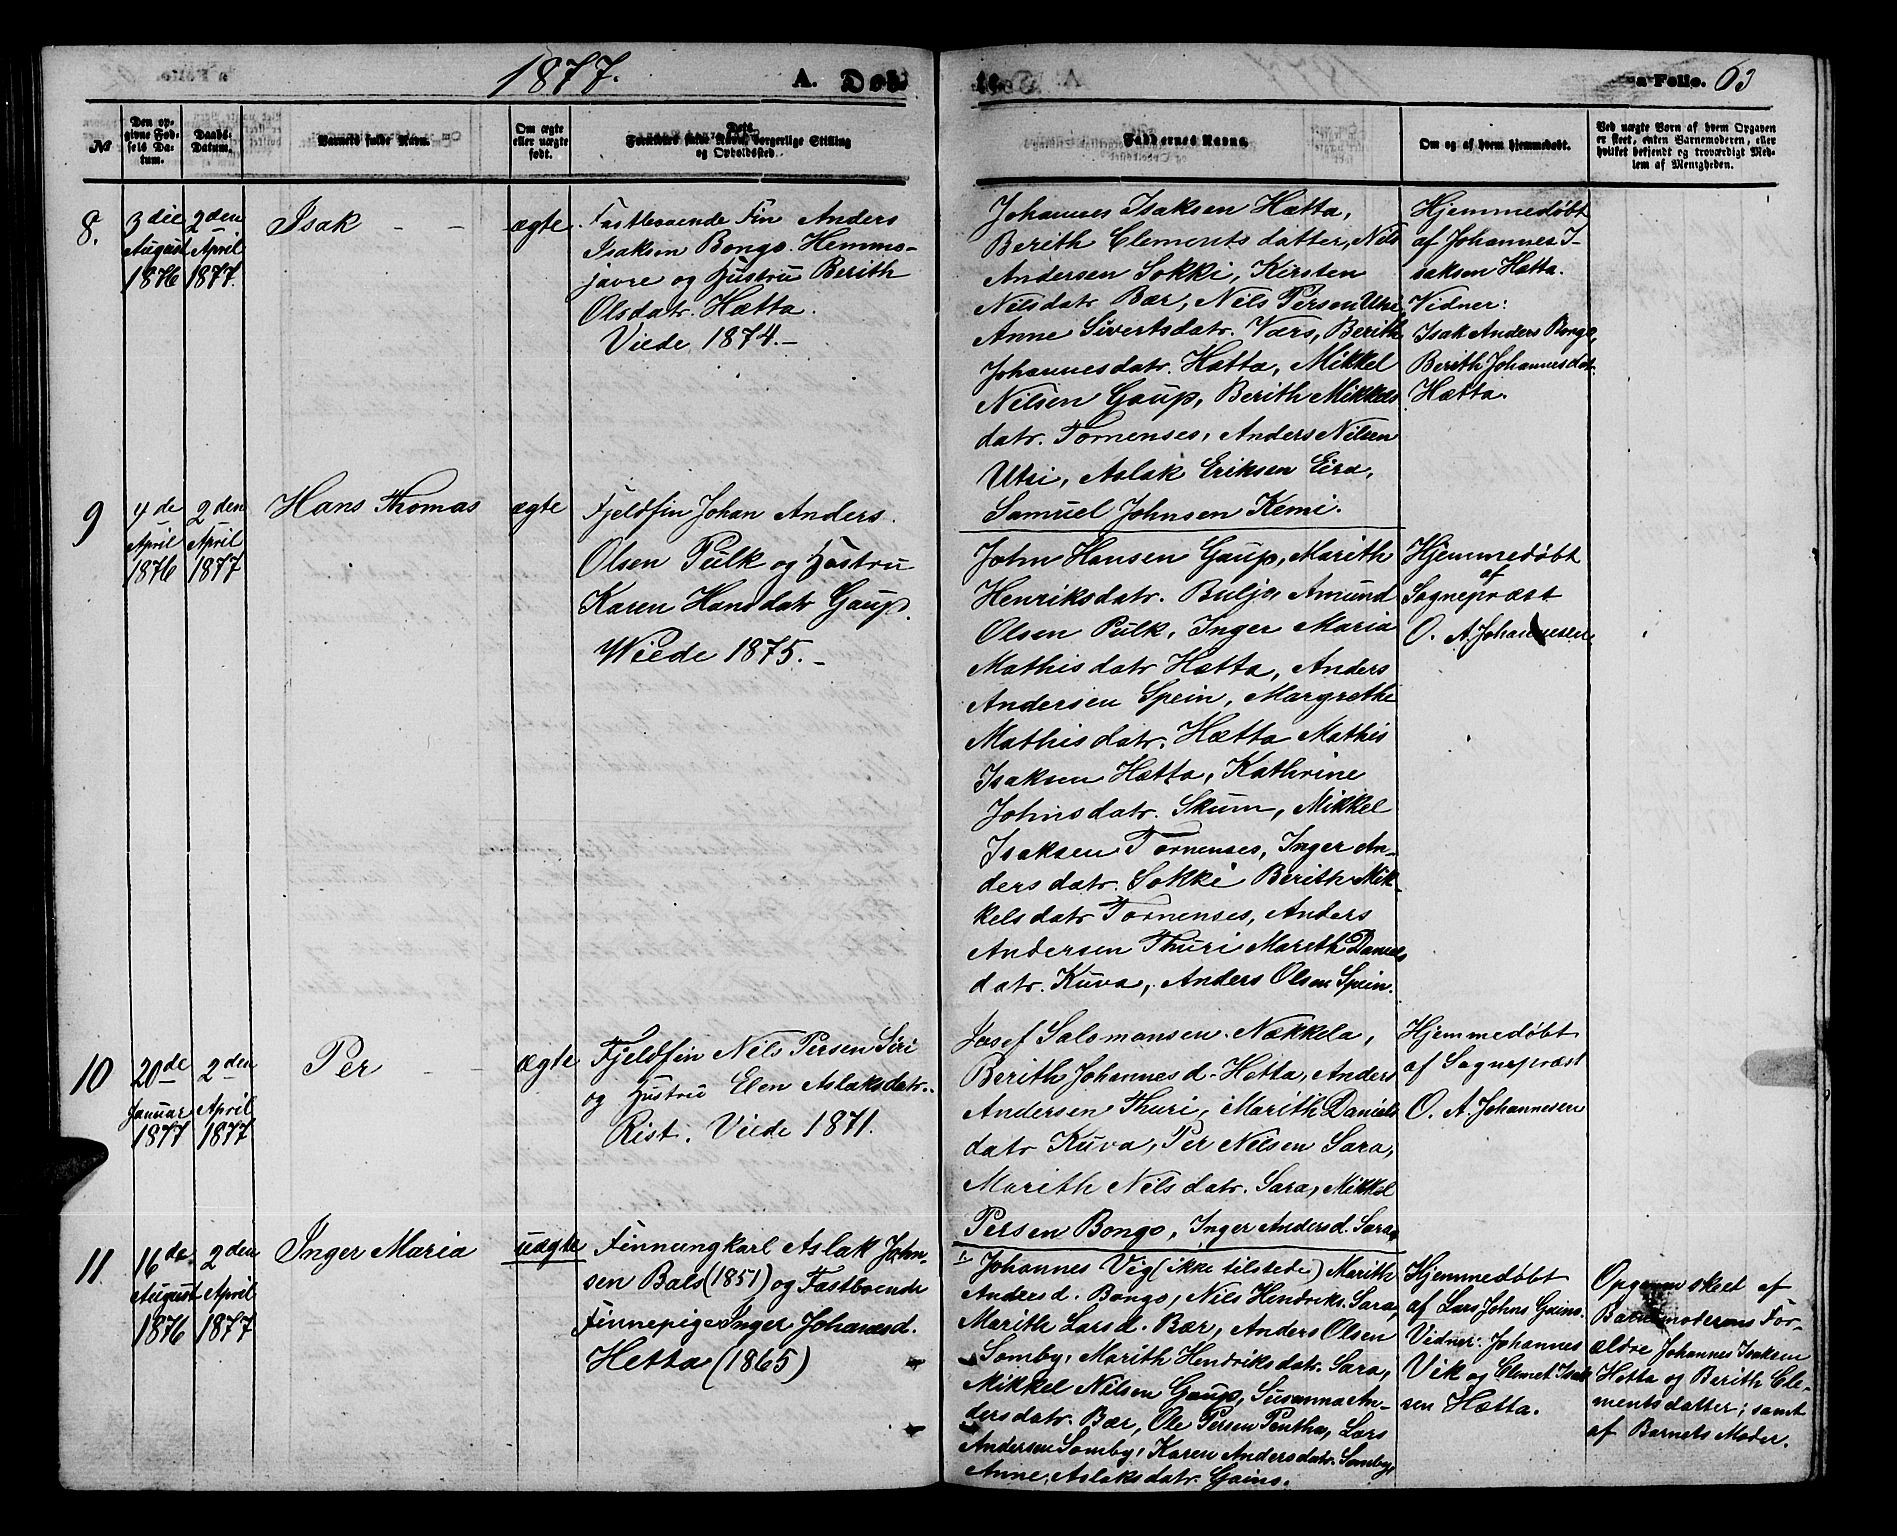 1877.
A. Døb-
te.
a Folio. 63
№
Den op-
givne Fød-
sels Da-
tum.
Daabs-
Datum.
Barnets fulde Navn.
Om ægte
eller uægte
født.
Forældres fulde Navn, borgerlige Stilling
og Opholdssted.
Faddernes Navne.
Om og af hvem hjemmedøbt.
Ved uægte Børn af hvem Opgaven
er skeet, enten Barnemoderen, eller
hvilket bekjendt og troværdigt Med-
lem af Menigheden.
8.
3die
August
1876
2den
April
1877.
Isak - -
ægte
Fastboende Fin Anders
Isaksen Bongo. Hemmo-
javre og Hustru Berith
Olsdatr. Hætta.
Viede 1874.-
Johannes Isaksen Hætta,
Berith Clements datter, Nils
Andersen Sokki, Kirsten
Nilsdatr Bær, Nils Persen Utsi,
Anne Sivertsdatr. Vars, Berith
Johannesdatr. Hætta, Mikkel
Nilsen Gaup, Berith Mikkels
datr. Tornenses, Anders Nilsen
Utsi, Aslak Eriksen Eira,
Samuel Johnsen Kemi.
Hjemmedøbt
af Johannes I-
saksen Hætta.
Vidner:
Isak Anders Bongo,
Berith Johannesdatr.
Hætta.
9
4de
April
1876
2den
April
1877
Hans Thomas
ægte
Fjeldfin Johan Anders
Olsen Pulk og Hustru
Karen Hansdatr Gaup.
Wiede 1875.-
John Hansen Gaup, Marith
Henriksdatr. Buljo Amund
Olsen Pulk, Inger Maria
Mathisdatr Hætta, Anders
Andersen Spein, Margrethe
Mathisdatr. Hætta Mathis
Isaksen Hætta, Kathrine
Johnsdatr. Skum, Mikkel
Isaksen Tornenses, Inger An-
dersdatr. Sokki Berith Mik-
kelsdatr Tornenses, Anders
Andersen Thuri Marith Daniels
datr. Kuva, Anders Olsen Spein.
Hjemmedøbt
af
Sognepræst
O. A. Johannesen
10
20de
Januar
1877
2den
April
1877
Per - -
ægte
Fjeldfin Nils Persen Siri
og Hustru Elen Aslaksdatr.
Rist. Viede 1871.
Josef Salomansen Nækkela,
Berith Johannesd. Hetta, Anders
Andersen Thuri, Marith Daniels
datr Kuva, Per Nilsen Sara,
Marith Nilsdatr. Sara, Mikkel
Persen Bongo, Inger Andersd. Sara
Hjemmedøbt
af Sognepræst
O. A. Johannesen
11
16de
August
1876
2den
April
1877
Inger Maria
uægte
Finnungkarl Aslak John-
sen Bals (1851) og Fastboende
Finnepige Inger Johanesd.
Hetta (1865)
Johannes Vig (ikke tilstede) Marith
Andersd. Bongo, Nils Hendriks. Sara,
Marith Larsd. Bær, Anders Olsen
Somby, Marith Hendriksdatr. Sara,
Mikkel Nilsen Gaup, Susanna An-
dersdatr. Bær, Ole Persen Pentha, Lars
Andersen Somby, Karen Andersdatr. Somby,
Anne Aslaksdatr. Gaino.
Hjemmedøbt
af Lars Johns Gaino.
Vidner: Johannes
Vik og Clemet Isak
sen Hætta.
Opgaven skeet af
Barnemoderens For-
ældre Johannes Isaksen
Hetta og Berith Cle-
mentsdatter; samt
af Barnets Moder.